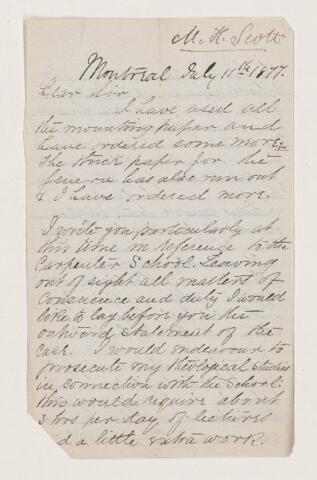 M. H. Scott
Montreal July 11th 1877.
Dear Sir
I have used all
the mounting paper and
have ordered some more.
The thick paper for the
genera has also run out
& I have ordered more.
I write you particularly at
this time in reference to the
Carpenter School. Leaving
out of sight all matters of
Conscience and duty I would
like to lay before you the
outward statement of the
case. I would endeavour to
prosecute my theological studies
in connection with the School:
this would require about
3 hrs per day of lectures
and a little extra work.